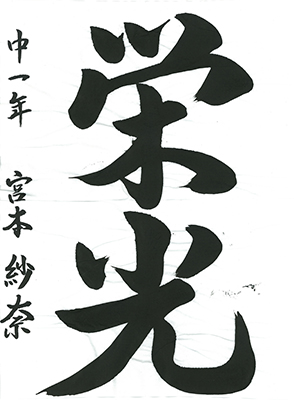 栄光
中一年 宮本紗奈